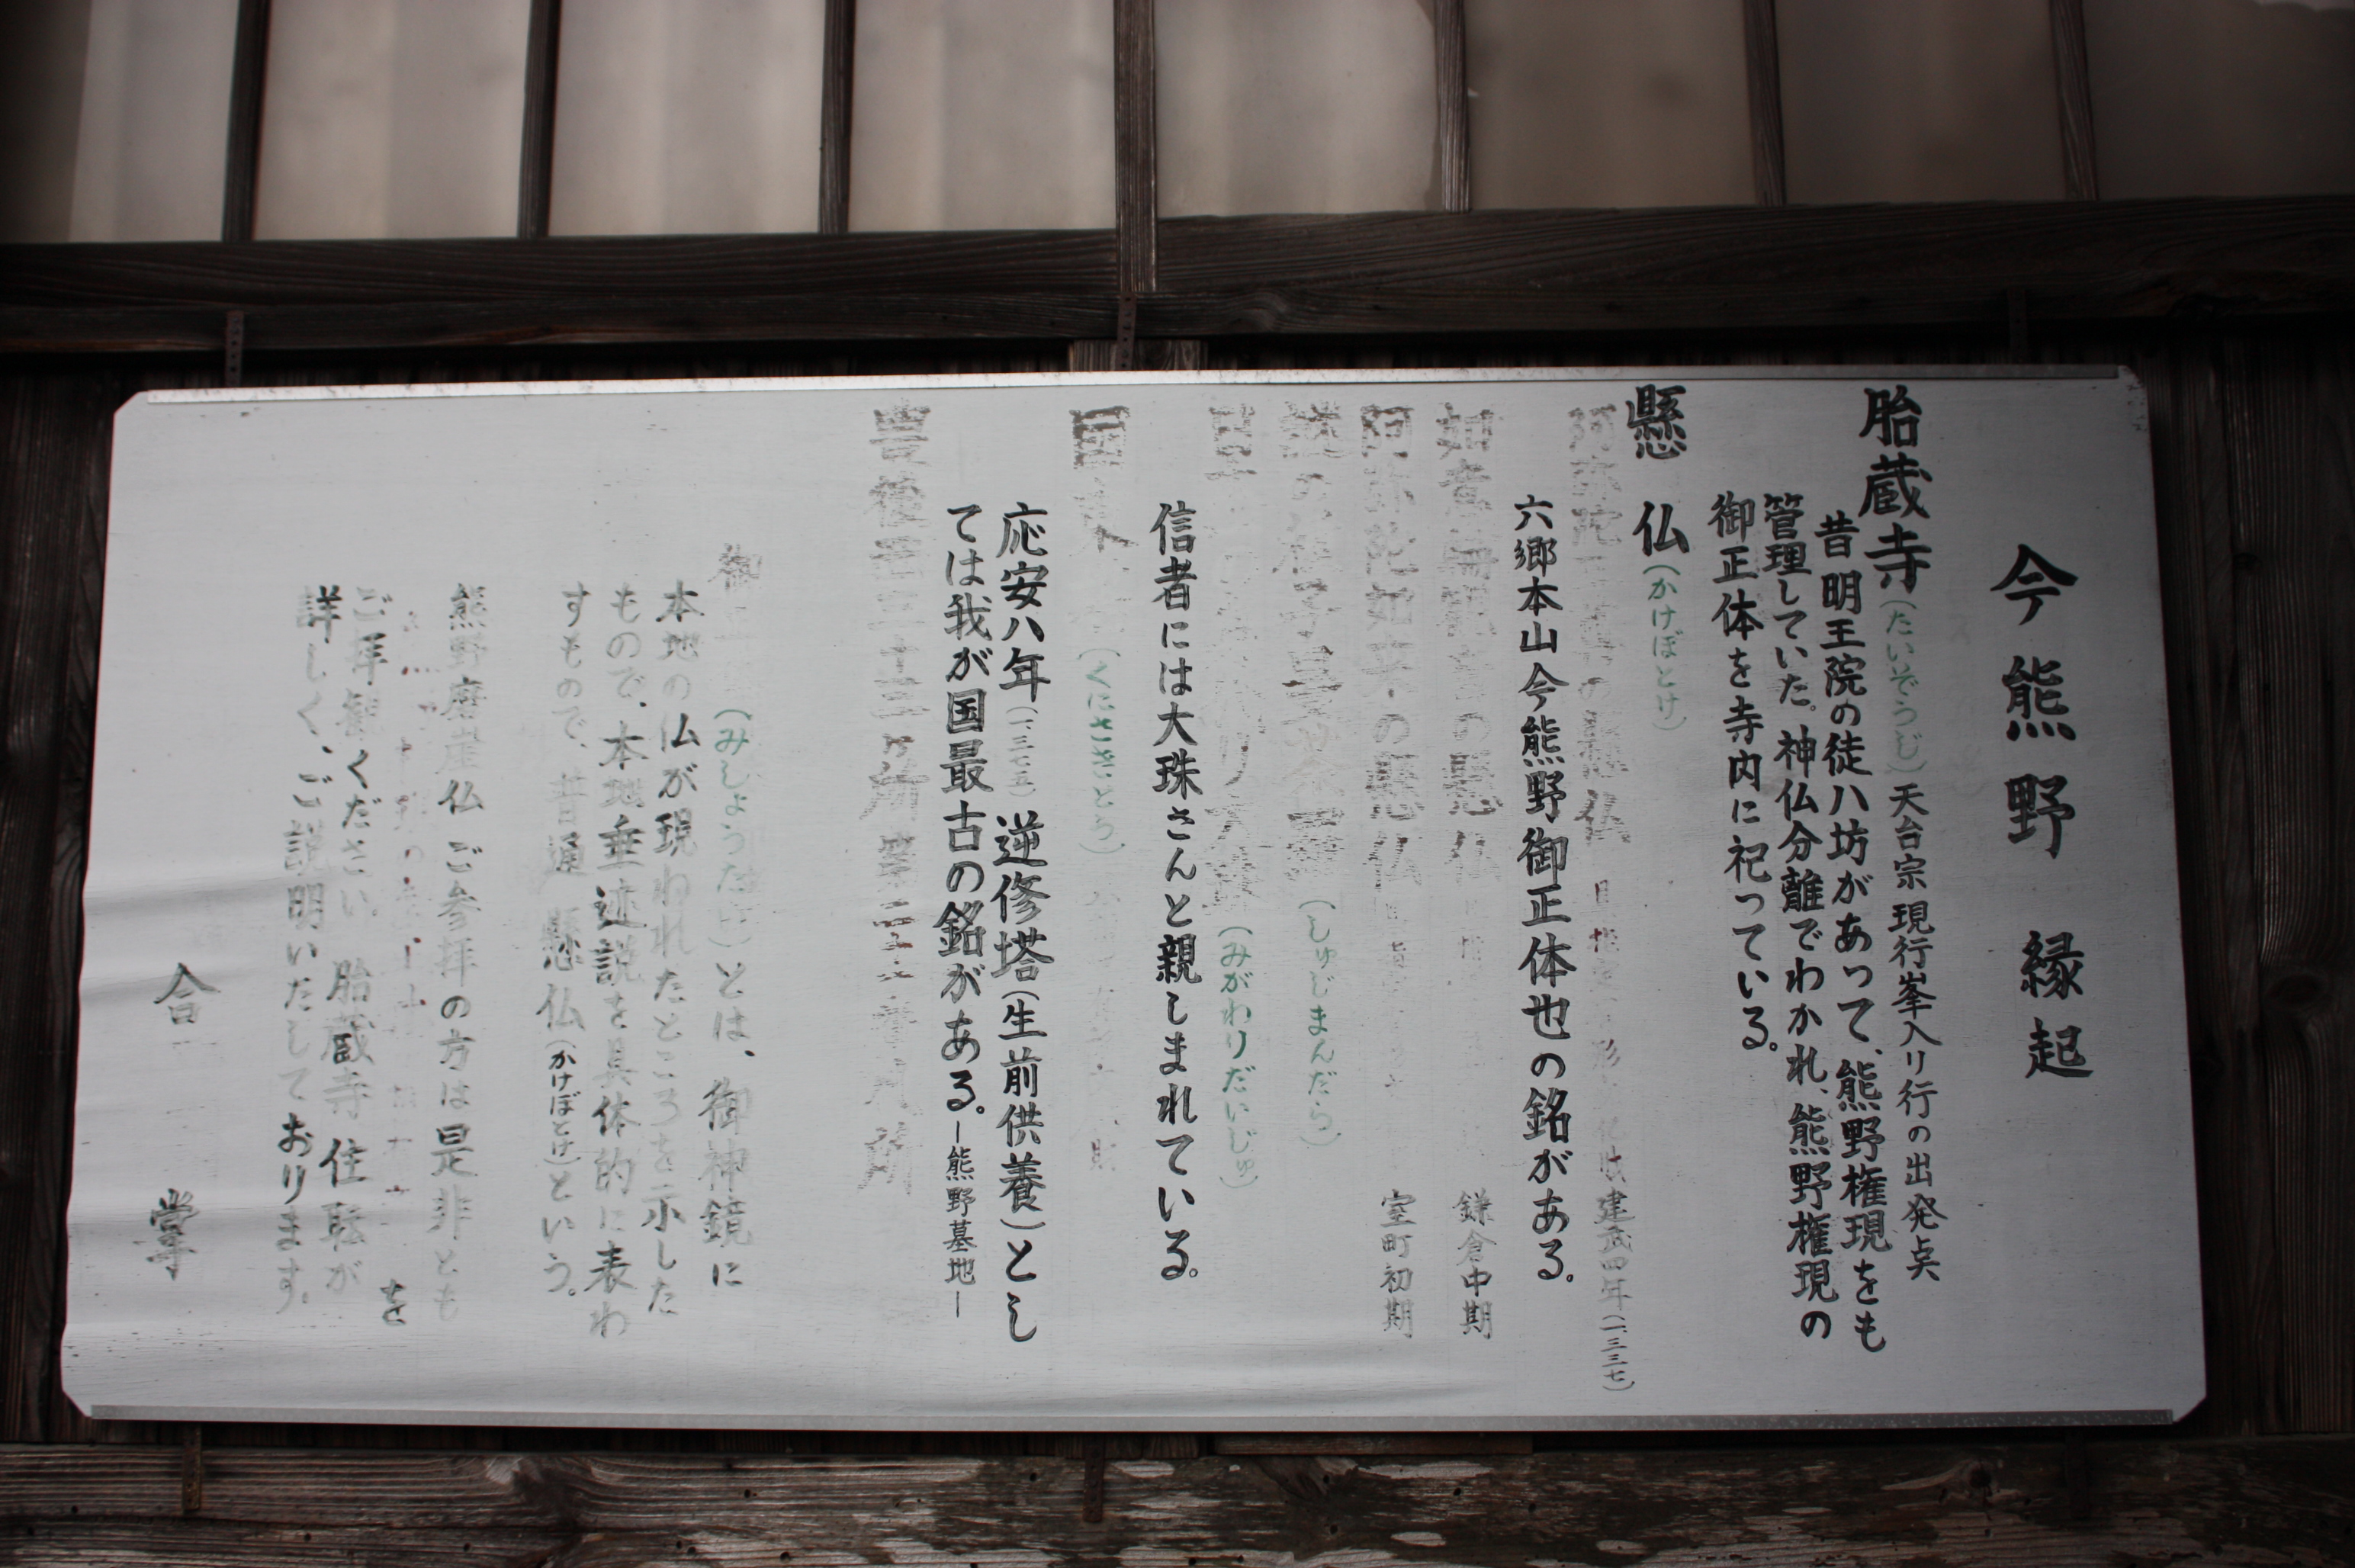 今熊野 縁起
胎蔵寺(たいぞうじ)天台宗現行峯入り行の出発点
昔明王院の徒八坊があって、熊野権現をも
管理していた。神仏分離でわかれ、熊野権現の
御正体を寺内に祀っている。
懸 仏(かけぼとけ)
阿弥陀 の懸仏 建武四年(一三三七)
六郷本山今熊野御正体也の銘がある。
如意輪観音の懸仏 鎌倉中期
阿弥陀如来の懸仏 室町初期
(しゅじまんだら)
(みがわりだいじゅ)
信者には大珠さんと親しまれている。
国東塔(くにさきとう)
応安八年(一三七五)逆修塔(生前供養)とし
ては我が国最古の銘がある。―熊野墓地―
豊後西国三十三ヶ所第二十二番札所
御正体(みしょうたい)とは、御神鏡に
本地の仏が現われたところを示した
もので、本地垂迹説を具体的に表わ
すもので、普通 懸仏(かけぼとけ)という。
熊野磨崖仏ご参拝の方は是非とも
を
ご拝観ください。胎蔵寺住職が
詳しく、ご説明いたしております。
合 掌